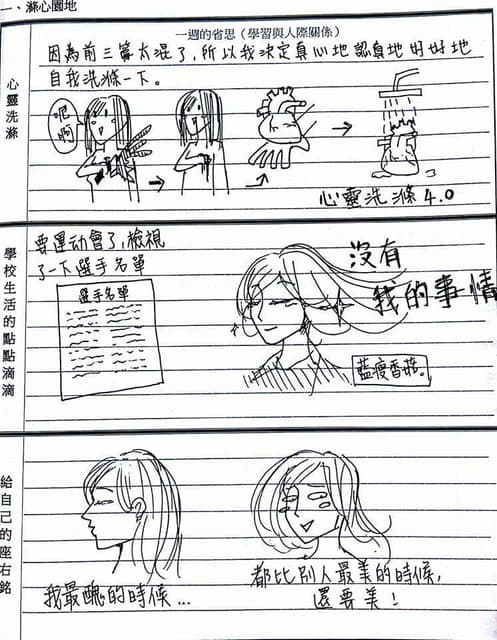 一、滌心園地
一週的省思（學習與人際關係）
心靈洗滌
因為前三篇太混了,所以我決定真心地認真地好好地
自我洗滌一下。
呃啊
心靈洗滌 4.0
學校生活的點點滴滴
要運动會了,檢視
了一下選手名單
選手名單
沒有
我的事情
藍瘦香菇。
給自己的座右銘
我最醜的時候...
都比別人最美的時候,
還要美!